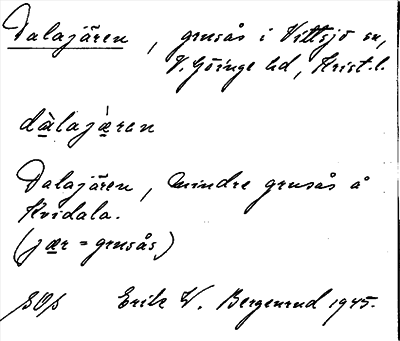 Dalajären, grusås i Vittsjö sn,
V. Göinge hd, Krist. l.
dàlajæren
Dalajären, mindre grusås å
Kvidala.
(jær = grusås)
Erik W. Bergenrud 1945.